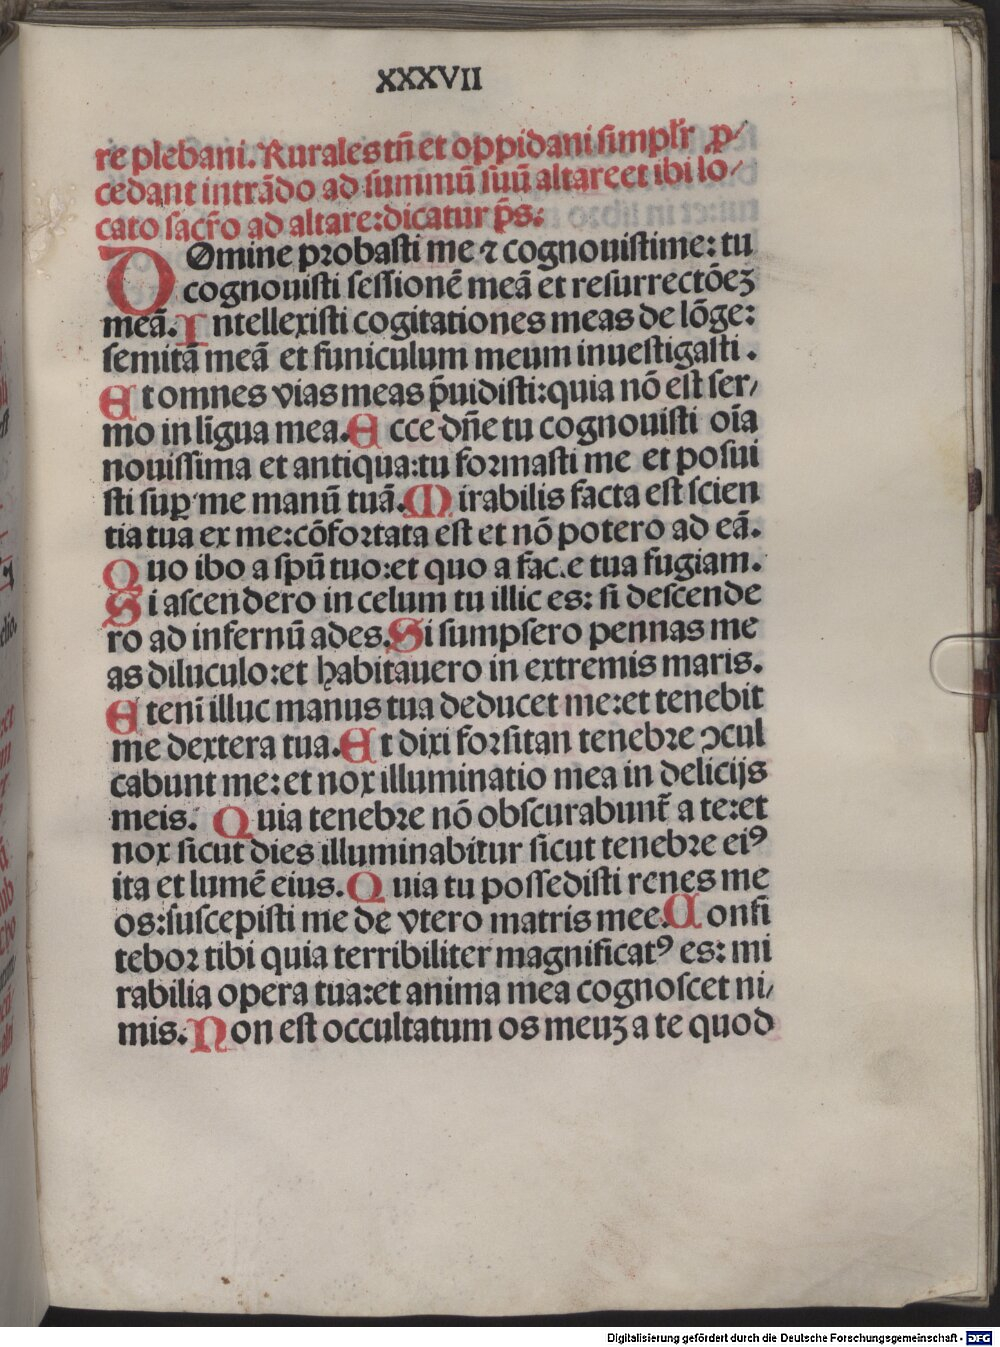 XXXVII
re plebani. Rurales tñ et oppidani simpłr ꝓ⸗
cedant intrãdo ad summũ suũ altare et ibi lo⸗
cato sacr̃o ad altare: dicatur p̃s.
DOmine probasti me ⁊ cognouisti me: tu
cognouisti sessionẽ meã et resurrectõeꝫ
meã. Intellexisti cogitationes meas de lõge:
semitã meã et funiculum meum inuestigasti.
Et omnes vias meas p̃uidisti: quia nõ est ser⸗
mo in lĩgua mea. Ecce dñe tu cognouisti oĩa
nouissima et antiqua: tu formasti me et posui
sti suꝑ me manũ tuã. Mirabilis facta est scien
tia tua ex me: cõfortata est et nõ potero ad eã.
Quo ibo a spũ tuo: et quo a facie tua fugiam.
Si ascendero in celum tu illic es: si descende
ro ad infernũ ades. Si sumpsero pennas me
as diluculo: et habitauero in extremis maris.
Etenĩ illuc manus tua deducet me: et tenebit
me dextera tua. Et dixi forsitan tenebre ↄcul
cabunt me: et nox illuminatio mea in delicijs
meis. Quia tenebre nõ obscurabunt᷑ a te: et
nox sicut dies illuminabitur sicut tenebre eiꝰ
ita et lumẽ eius. Quia tu possedisti renes me
os: suscepisti me de vtero matris mee. Confi
tebor tibi quia terribiliter magnificatꝰ es: mi
rabilia opera tua: et anima mea cognoscet ni⸗
mis. Non est occultatum os meuꝫ a te quod
Digitalisierung gefördert durch die Deutsche Forschungsgemeinschaft - DFG